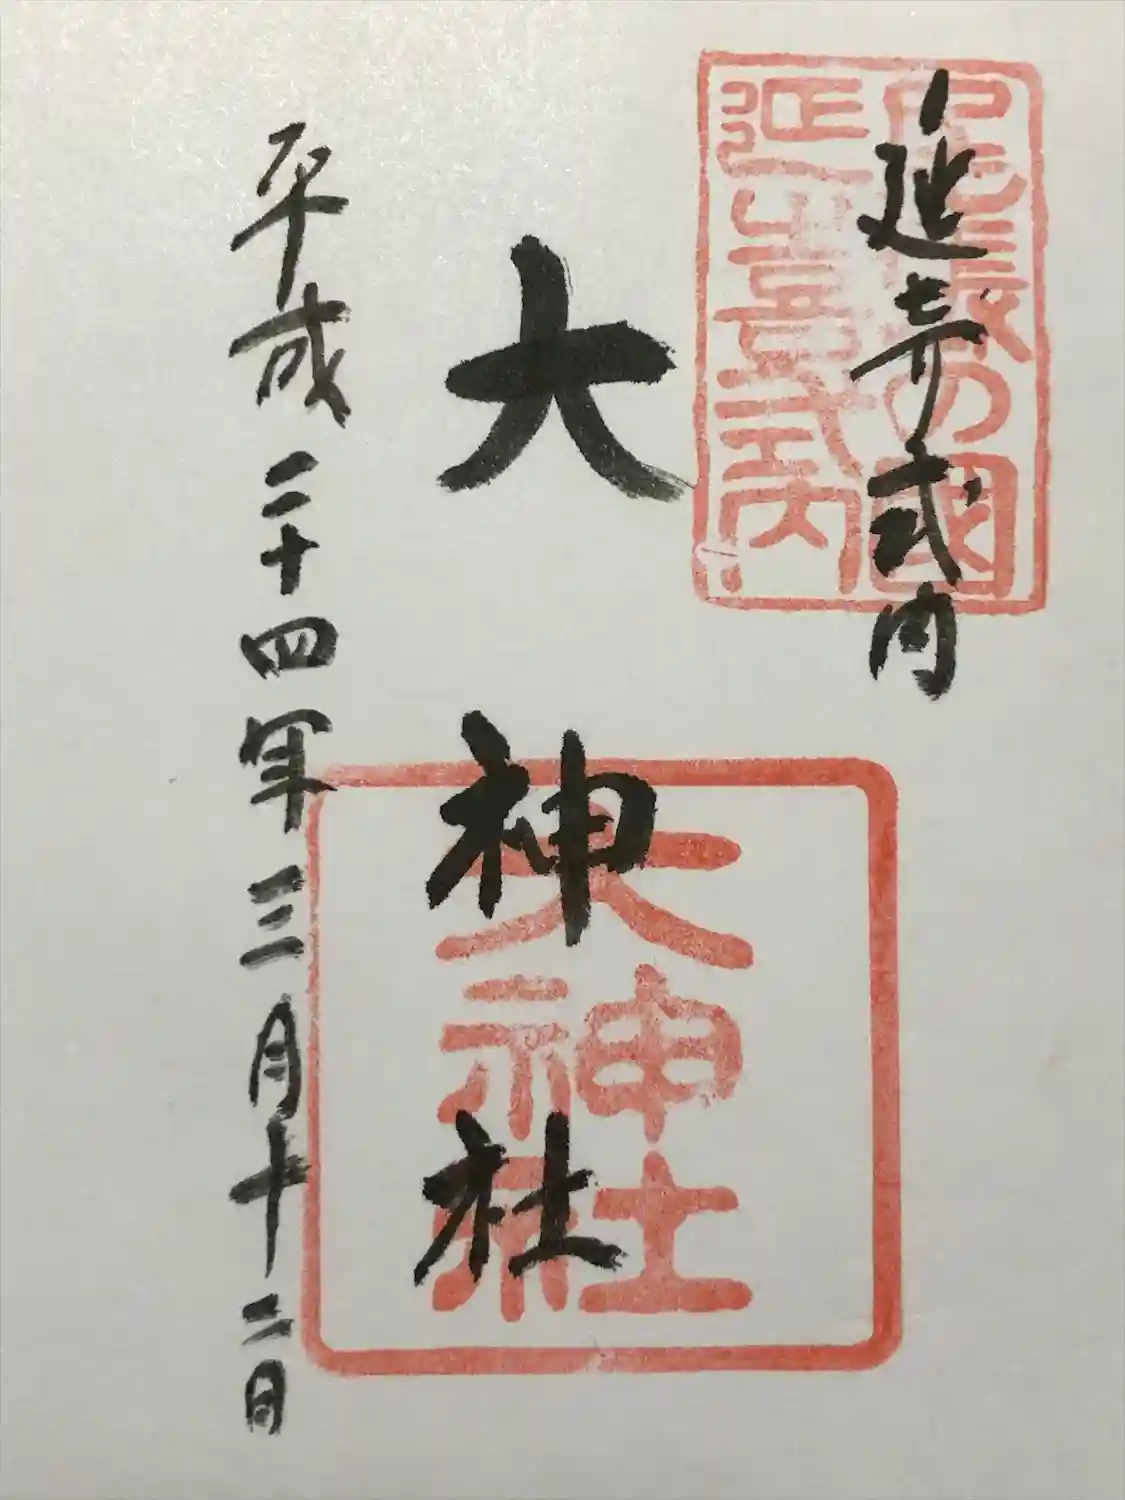 尾張の國
延喜式内
延喜式内
大神社
大神社
平成二十四年三月十二日